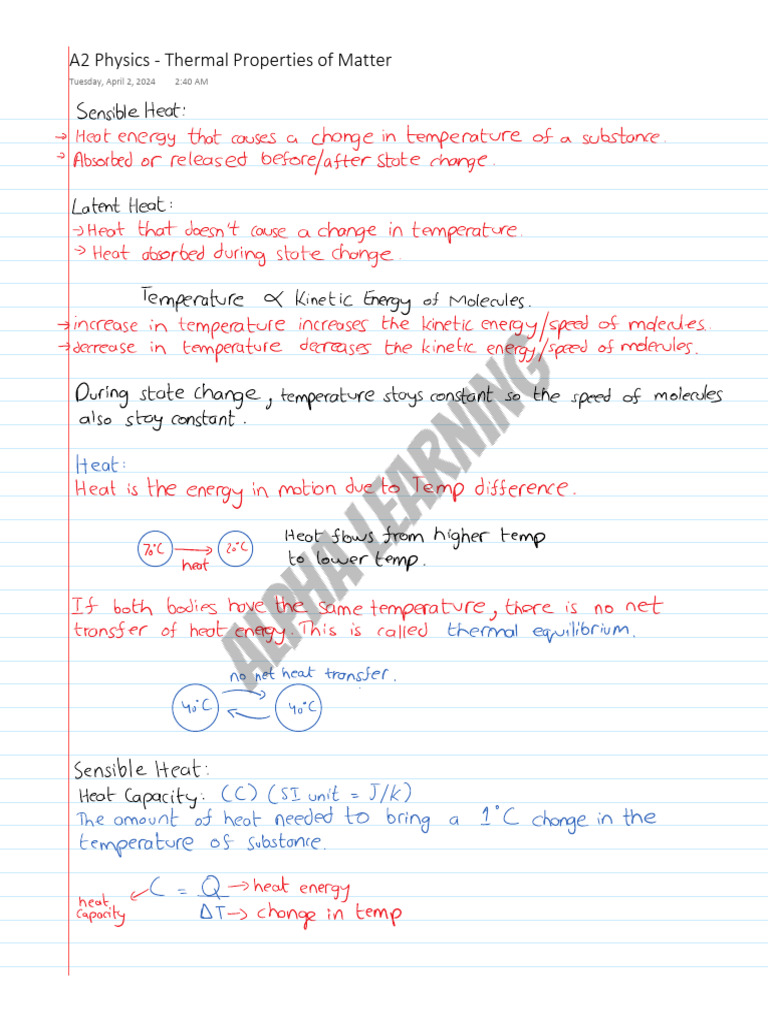 A2 Physics - Thermal Properties of Matter
Tuesday, April 2, 2024 2:40 AM
Sensible Heat:
→ Heat energy that causes a change in temperature of a substance.
→ Absorbed or released before/after state change.
Latent Heat:
→ Heat that doesn't cause a change in temperature.
→ Heat absorbed during state change.
Temperature ∝ Kinetic Energy of Molecules.
→ increase in temperature increases the kinetic energy/speed of molecules.
→ decrease in temperature decreases the kinetic energy/speed of molecules.
During state change, temperature stays constant so the speed of molecules
also stay constant.
Heat:
Heat is the energy in motion due to Temp difference.
70°C → 20°C Heat flows from higher temp
heat to lower temp.
If both bodies have the same temperature, there is no net
transfer of heat energy. This is called thermal equilibrium.
no net heat transfer.
40°C 40°C
Sensible Heat:
Heat Capacity: (C) (SI unit = J/k)
The amount of heat needed to bring a 1°C change in the
temperature of substance.
C = Q → heat energy
heat capacity ΔT → change in temp
ALPHA LEARNING